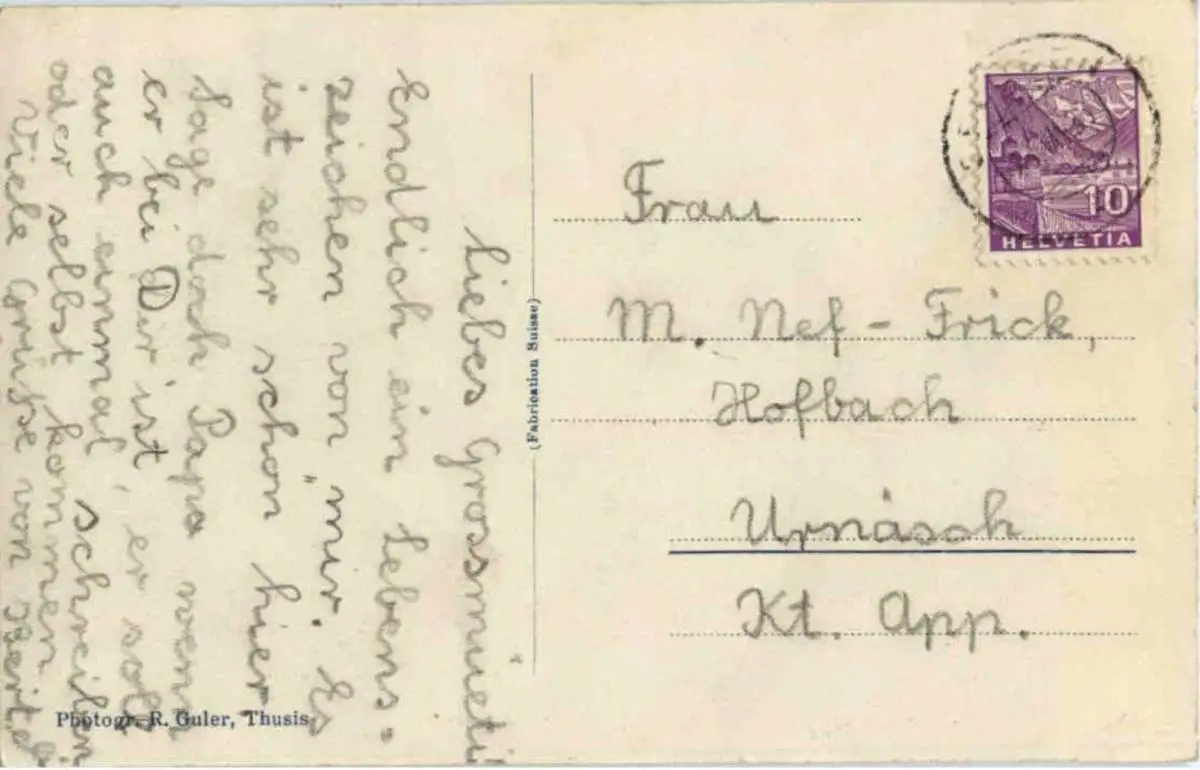 Liebes Grossmueti
Endlich ein Lebens-
zeichen von mir. Es
ist sehr schön hier
Sage doch Papa wenn
er bei Dir ist, er soll
auch einmal schreiben
oder selbst kommen
Viele Grüße von
(Fabrication Suisse)
Photogr. R. Guler, Thusis
10
HELVETIA
Frau
M. Nef - Frick,
Hofbach
Urnäsch
Kt. App.